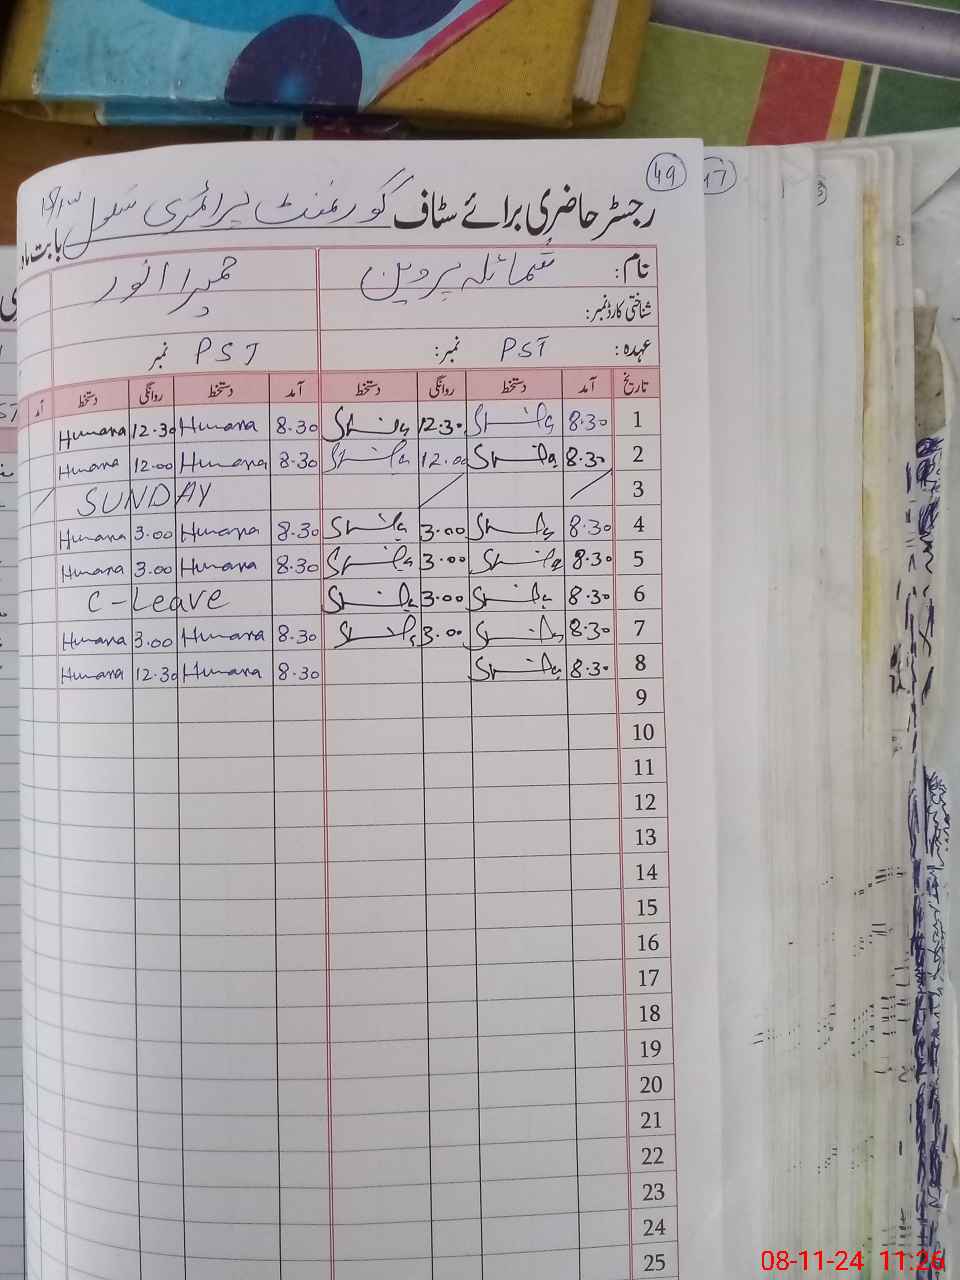 49
17
رجسٹر حاضری برائے سٹاف گورنمنٹ پرائمری سکول
بابت ماہ
نام: شمائلہ پروین حمیرا انور
شناختی کارڈ نمبر:
عہدہ: PST نمبر: PST نمبر
تاریخ آمد دستخط روانگی دستخط آمد دستخط روانگی دستخط آمد
1 8.30 12.30 8.30 Humara 12.30 Humara
2 8.30 12.00 8.30 Humara 12.00 Humara
3 SUNDAY
4 8.30 3.00 8.30 Humara 3.00 Humara
5 8.30 3.00 8.30 Humara 3.00 Humara
6 8.30 3.00 C-Leave
7 8.30 3.00 8.30 Humara 3.00 Humara
8 8.30 8.30 Humara 12.30 Humara
9
10
11
12
13
14
15
16
17
18
19
20
21
22
23
24
25
08-11-24 11:26